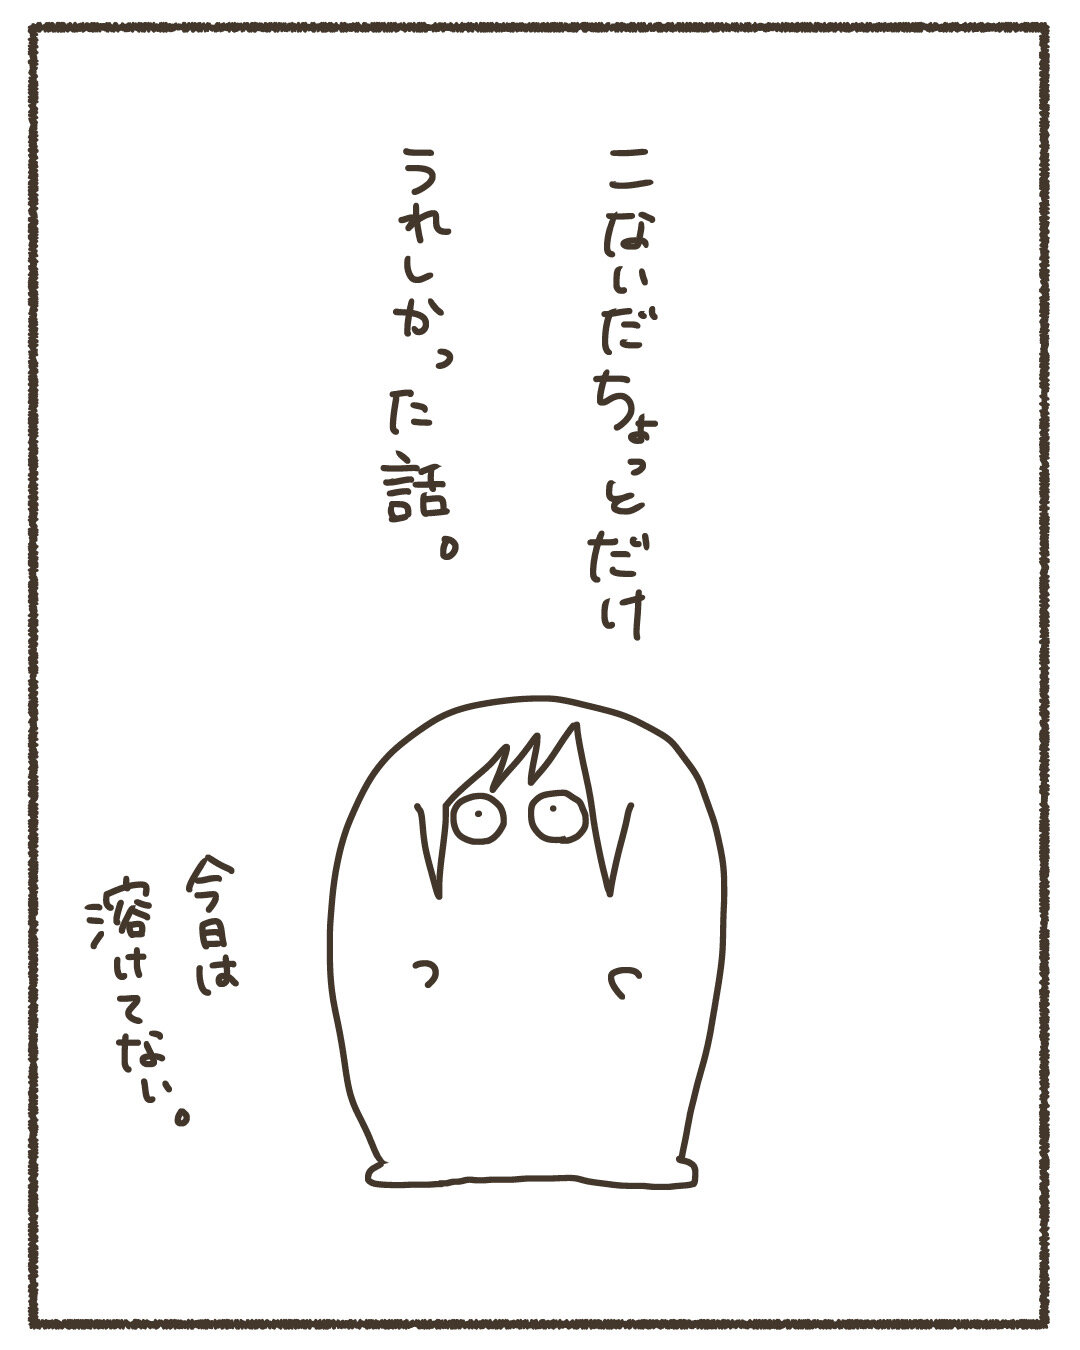 こないだちょっとだけ
うれしかった話。
今日は
溶けてない。